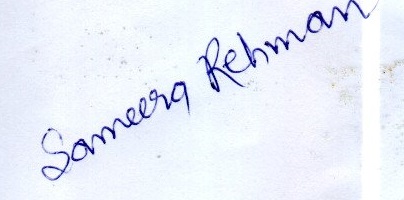 Sameera Rehman